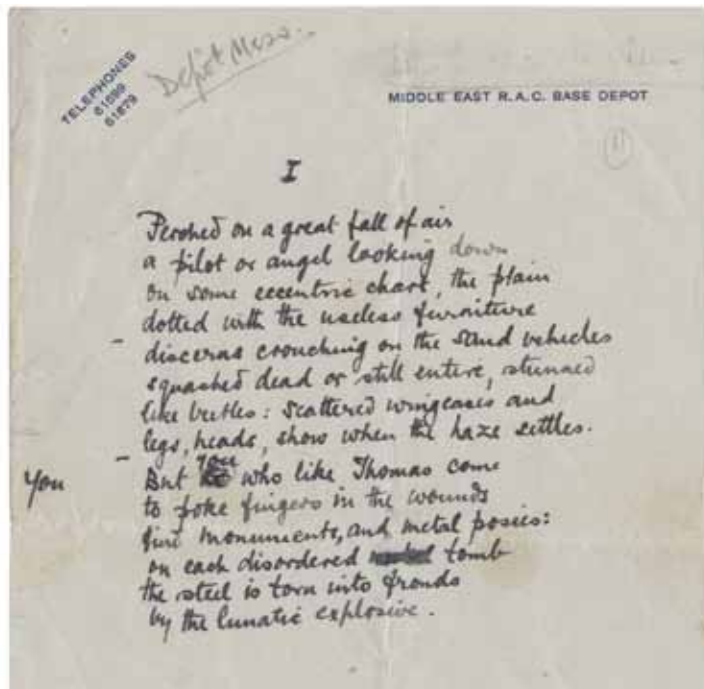 TELEPHONES
61699
61679
Depot Mess.
MIDDLE EAST R.A.C. BASE DEPOT
11
I
Perched on a great fall of air
a pilot or angel looking down
on some eccentric chart, the plain
dotted with the useless furniture
- discerns crouching on the sand vehicles
squashed dead or still entire, stunned
like beetles: scattered wingcases and
legs, heads, show when the haze settles.
- You But you who like Thomas come
to poke fingers in the wounds
find monuments, and metal posies:
on each disordered tomb
the steel is torn into fronds
by the lunatic explosive.